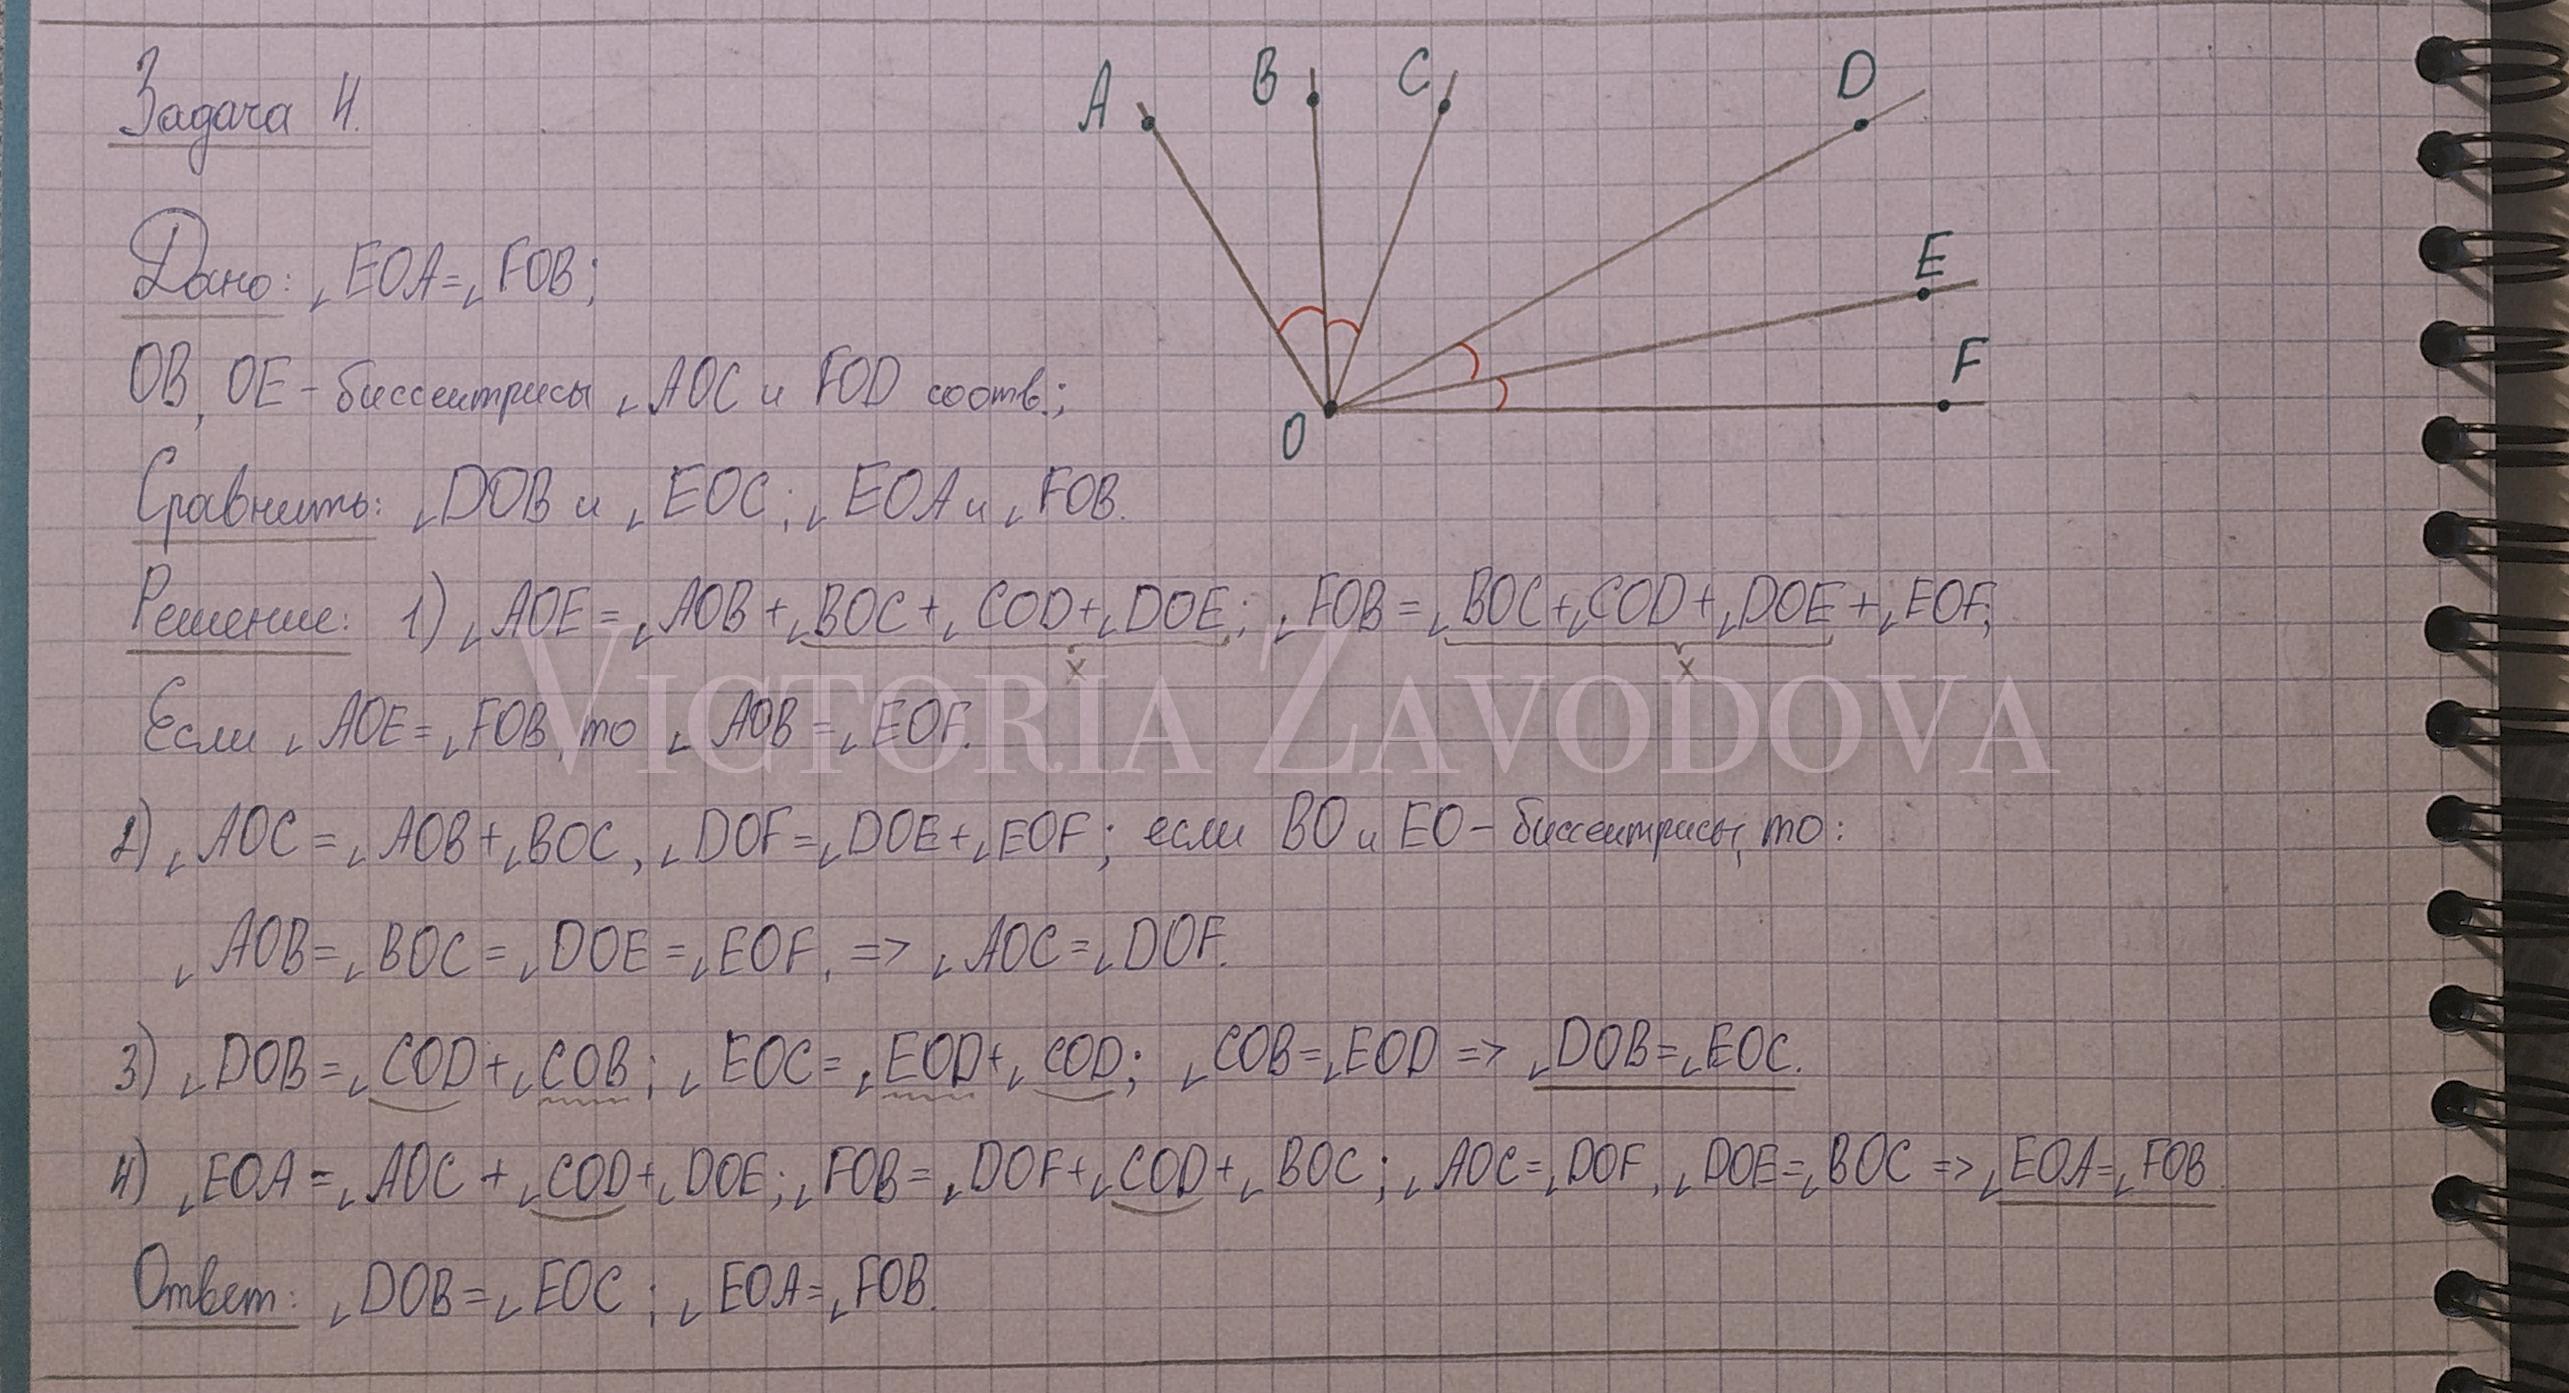 Задача 4.
A B C D E F O
Дано: ∠EOA=∠FOB;
OB, OE - биссектрисы ∠AOC и FOD соотв.;
Сравнить: ∠DOB и ∠EOC; ∠EOA и ∠FOB.
Решение: 1) ∠AOE=∠AOB+∠BOC+∠COD+∠DOE; ∠FOB=∠BOC+∠COD+∠DOE+∠EOF;
x x
Если ∠AOE=∠FOB, то ∠AOB=∠EOF.
2) ∠AOC=∠AOB+∠BOC, ∠DOF=∠DOE+∠EOF; если BO и EO - биссектрисы, то:
∠AOB=∠BOC=∠DOE=∠EOF, => ∠AOC=∠DOF.
3) ∠DOB=∠COD+∠COB; ∠EOC=∠EOD+∠COD; ∠COB=∠EOD => ∠DOB=∠EOC.
4) ∠EOA=∠AOC+∠COD+∠DOE; ∠FOB=∠DOF+∠COD+∠BOC; ∠AOC=∠DOF, ∠DOE=∠BOC => ∠EOA=∠FOB
Ответ: ∠DOB=∠EOC; ∠EOA=∠FOB.
VICTORIA ZAVODOVA